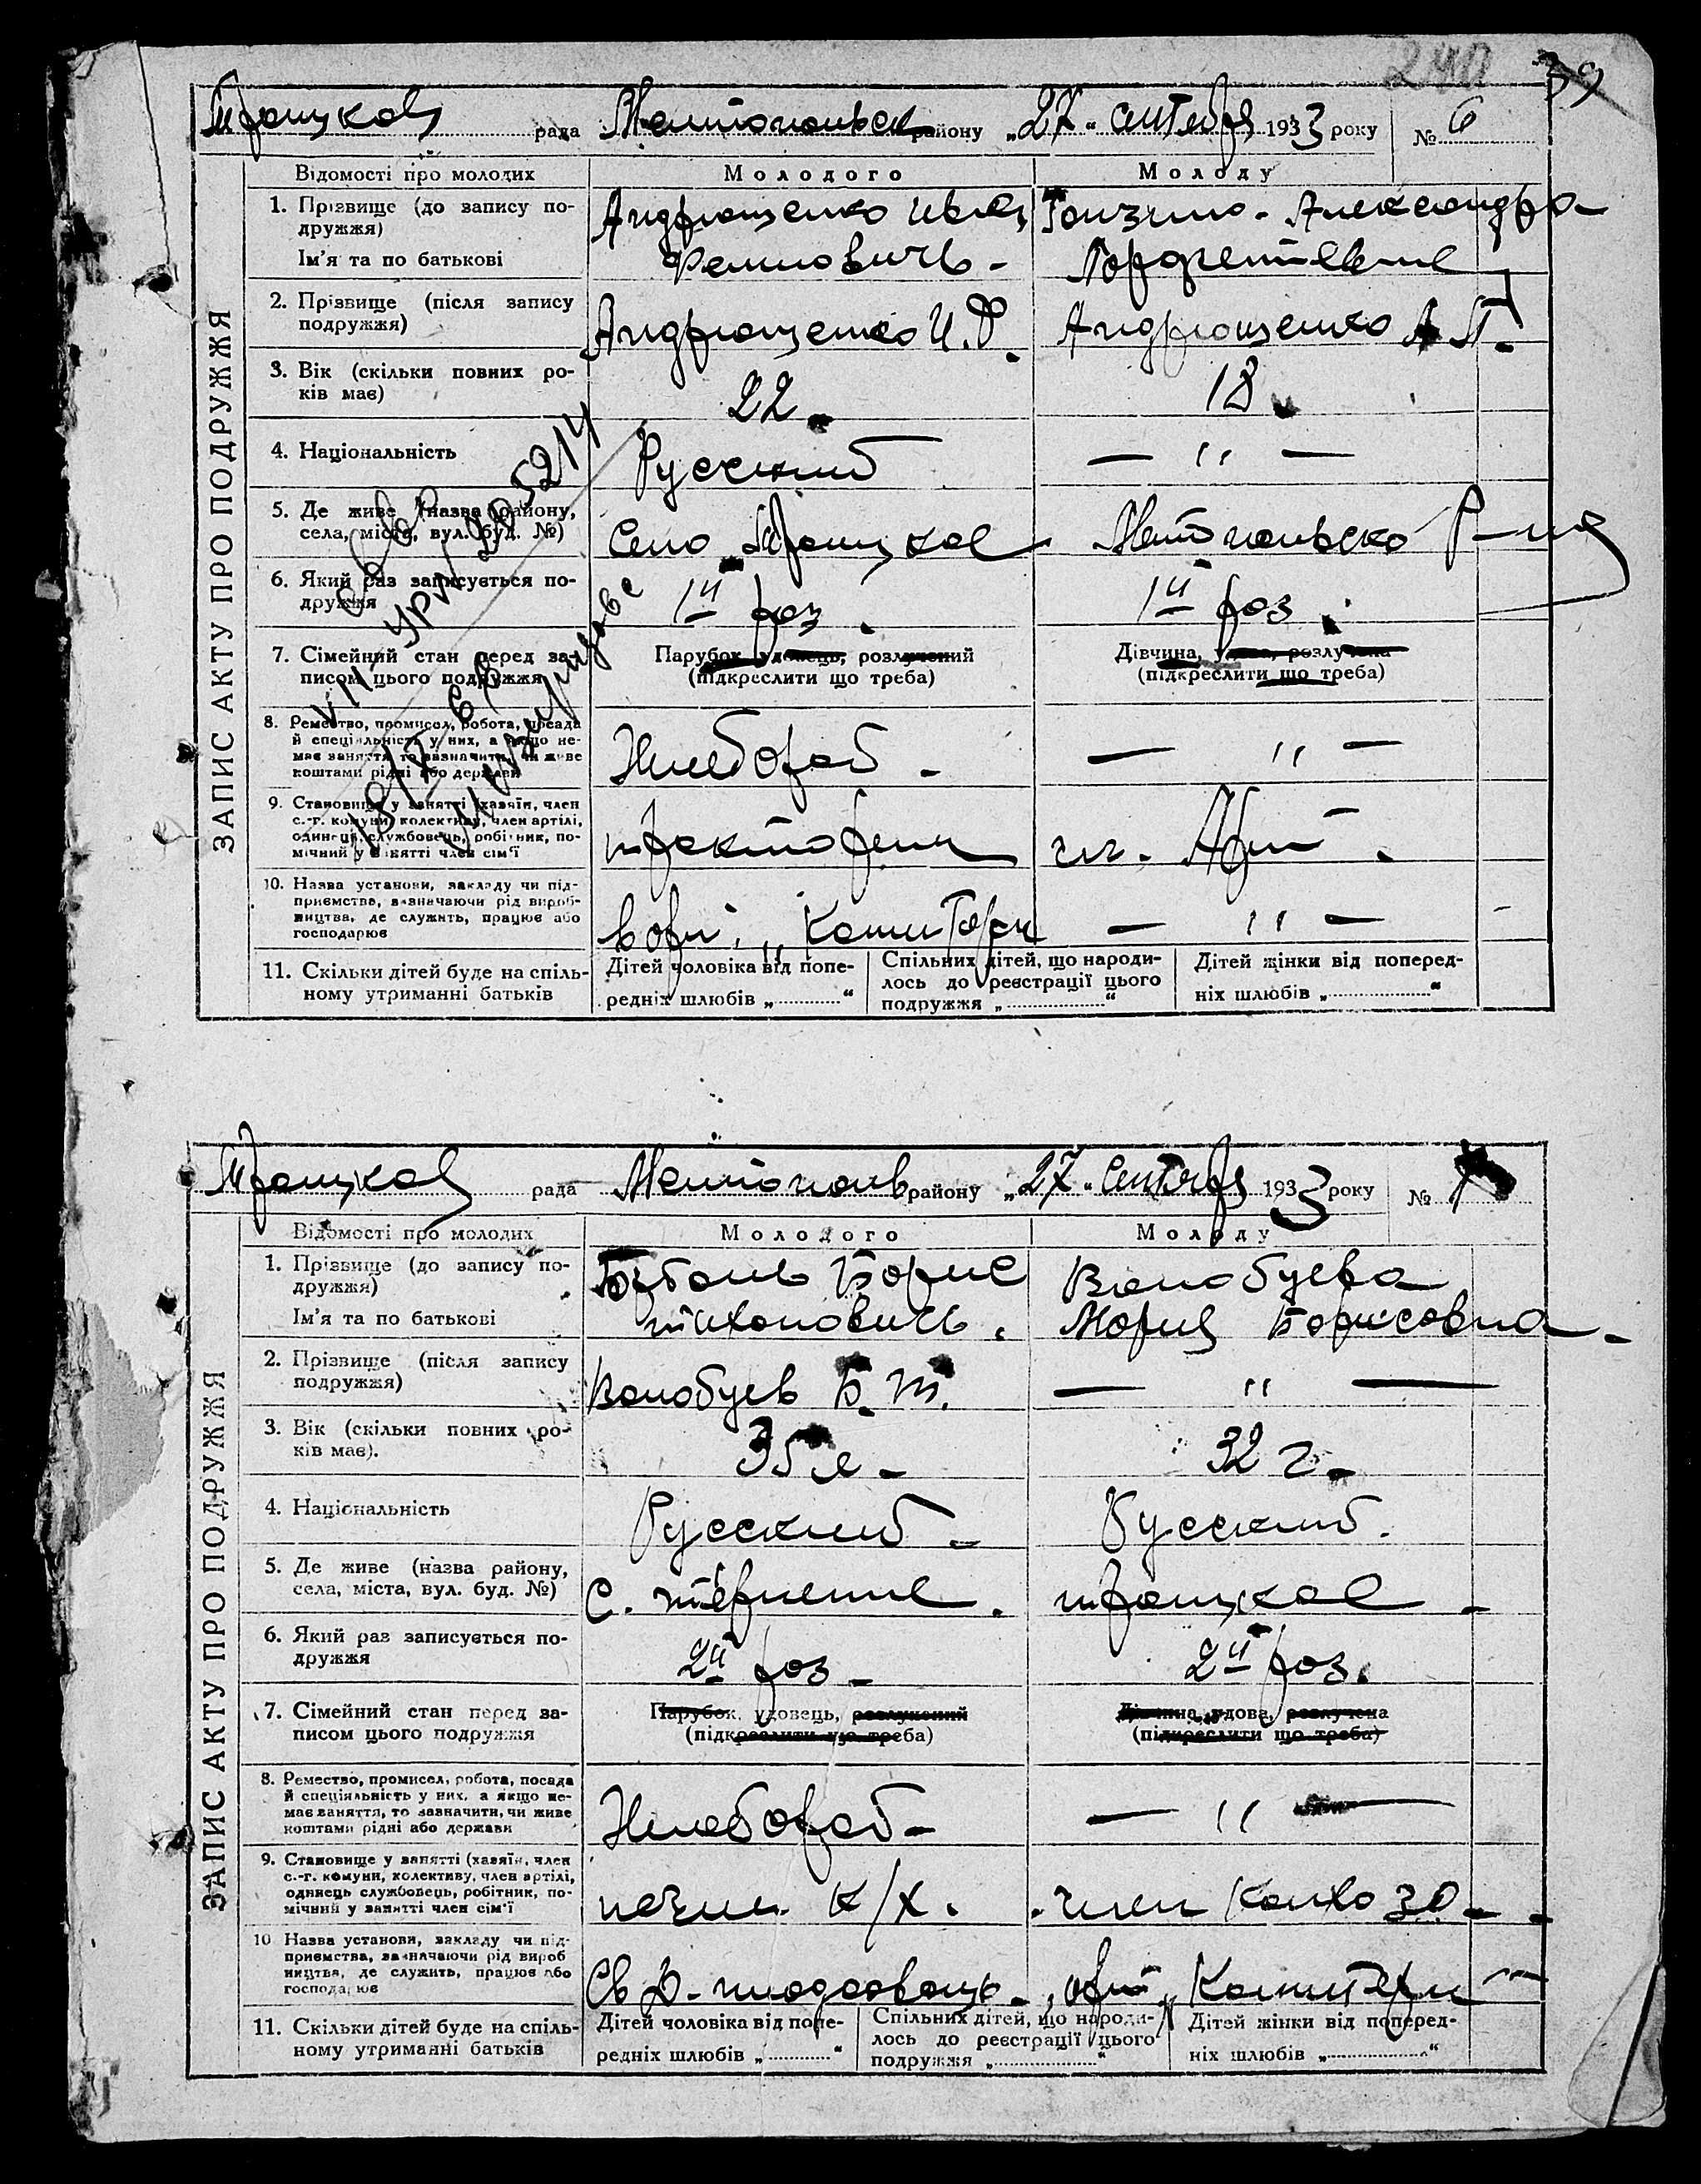 39
Троцкая рада Мелитопольск району „27" сентября 1933 року № 6
ЗАПИС АКТУ ПРО ПОДРУЖЖЯ
Відомості про молодих Молодого Молоду
1. Прізвище (до запису по-
дружжя)
Ім'я та по батькові
Андрющенко Иван
Александра
2. Прізвище (після запису
подружжя)
Андрющенко И.Ф. Андрющенко А П.
3. Вік (скільки повних ро-
ків має)
22 18
4. Національність
Русский — " —
5. Де живе (назва району,
села, міста, вул. буд. №)
Село Троицкое Мелітопольско Р-на
6. Який раз записується по-
дружжя
1й раз 1й раз
7. Сімейний стан перед за-
писом цього подружжя
Парубок, удовець, розлучений
(підкреслити що треба)
Дівчина, удова, розлучена
(підкреслити що треба)
8. Ремество, промисел, робота, посада
й спеціяльність у них, а якщо не-
має заняття, то зазначити, чи живе
коштами рідні або держави
Хлебороб — " —
9. Становище у занятті (хазяїн, член
с.-г. комуни, колективу, член артілі,
одинець, службовець, робітник, по-
мічний у занятті член сім'ї
чл. Арт.
10. Назва установи, закладу чи під-
приємства, зазначаючи рід вироб-
ництва, де служить, працює або
господарює
Коминтерн — " —
11. Скільки дітей буде на спіль-
ному утриманні батьків
Дітей чоловіка від попе-
редніх шлюбів „............"
Спільних дітей, що народи-
лось до реєстрації цього
подружжя „............"
Дітей жінки від поперед-
ніх шлюбів „............"
Троцкая рада Мелитополь району „27" Сентября 1933 року № 7
ЗАПИС АКТУ ПРО ПОДРУЖЖЯ
Відомості про молодих Молодого Молоду
1. Прізвище (до запису по-
дружжя)
Ім'я та по батькові
Борис
тихонович.
Волобуева
Мария Борисовна
2. Прізвище (після запису
подружжя)
Волобуев Б. Т. — " —
3. Вік (скільки повних ро-
ків має).
35 л 32 г.
4. Національність
Русский Русский.
5. Де живе (назва району,
села, міста, вул. буд. №)
С. терпение. троицкое
6. Який раз записується по-
дружжя
2й раз 2й раз.
7. Сімейний стан перед за-
писом цього подружжя
Парубок, удовець, розлучений
(підкреслити що треба)
Дівчина, удова, розлучена
(підкреслити що треба)
8. Ремество, промисел, робота, посада
й спеціяльність у них, а якщо не-
має заняття, то зазначити, чи живе
коштами рідні або держави
Хлебороб — " —
9. Становище у занятті (хазяїн, член
с.-г. комуни, колективу, член артілі,
одинець службовець, робітник, по-
мічний у занятті член сім'ї
к/х. член колхоза
10 Назва установи, закладу чи під-
приємства, зазначаючи рід вироб
ництва, де служить, працює або
господарює
арт „Коминтерн"
11. Скільки дітей буде на спіль-
ному утриманні батьків
Дітей чоловіка від попе-
редніх шлюбів „............"
Спільних дітей, що народи-
лось до реєстрації цього
подружжя „............"
Дітей жінки від поперед-
ніх шлюбів „............"